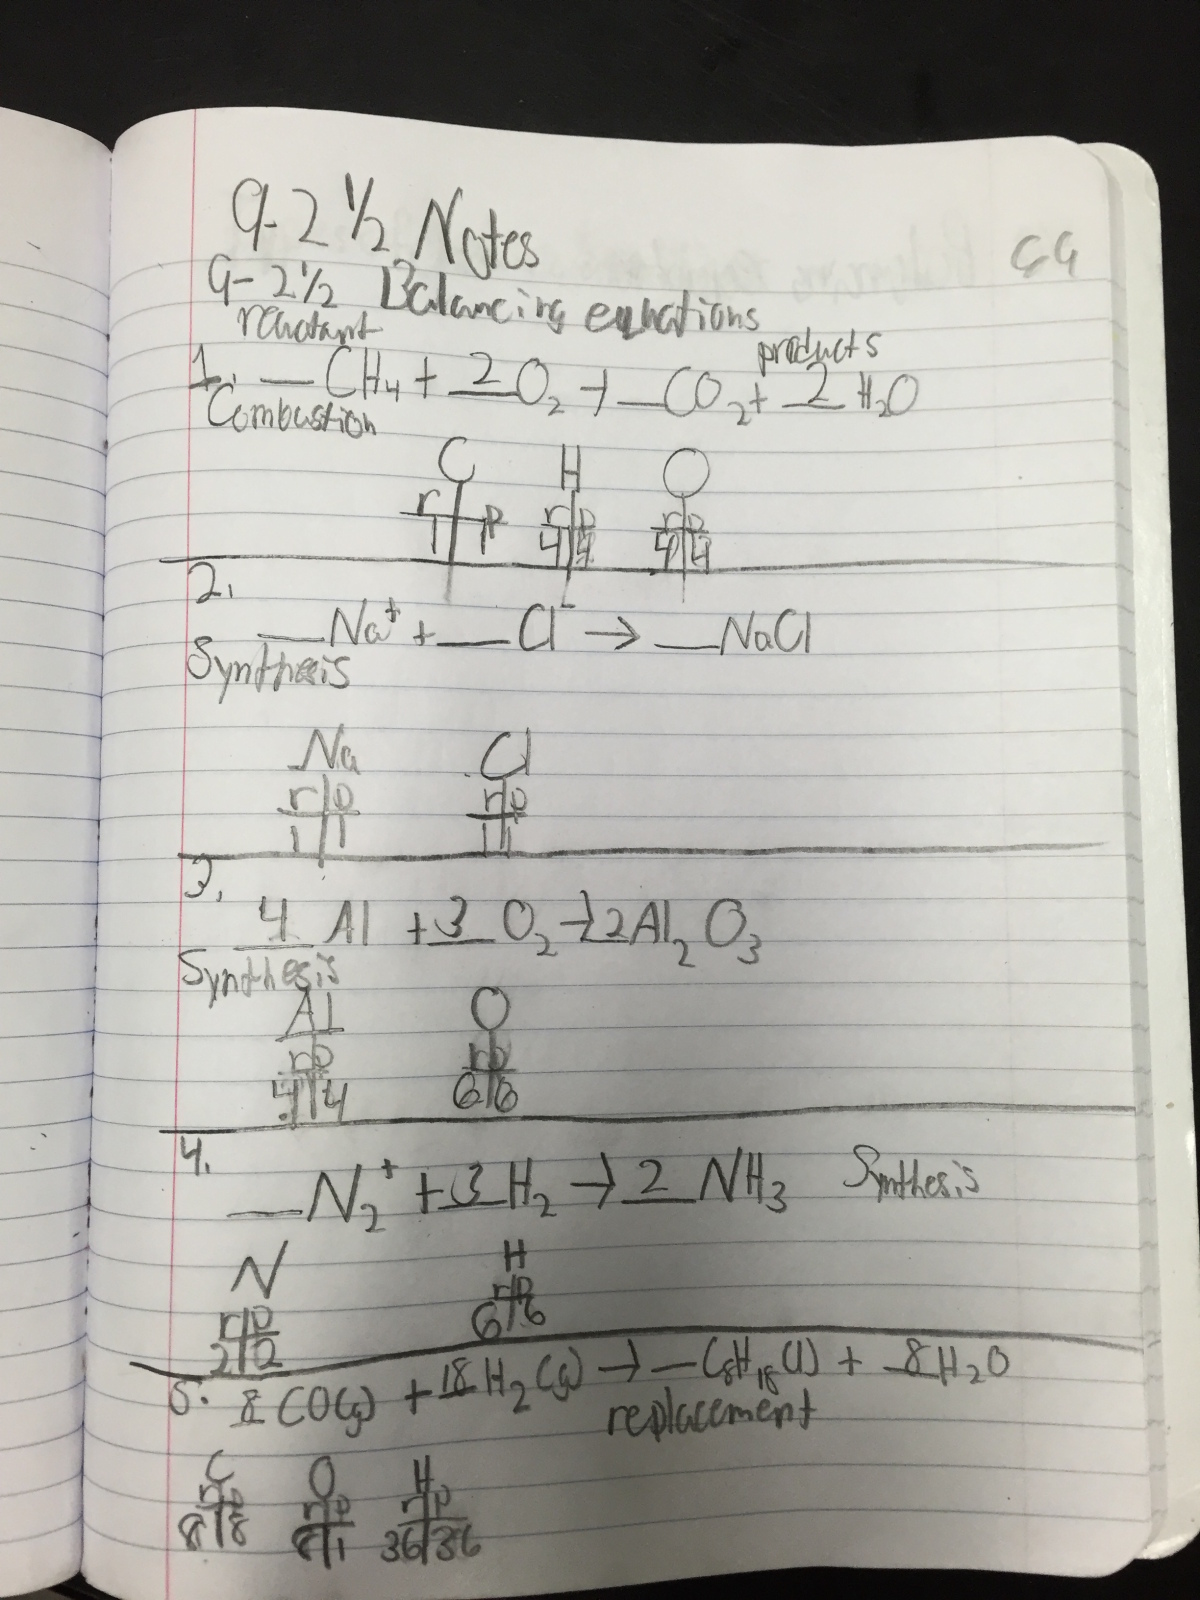 9-2 ½ Notes
59
9-2½ Balancing equations
reactant
products
1. __CH₄ + 2 O₂ → __CO₂ + 2 H₂O
Combustion
C H O
r p r p r p
1 1 4 4 4 4
2.
__Na⁺ + __Cl⁻ → __NaCl
Synthesis
Na Cl
r p r p
1 1 1 1
3.
4 Al + 3 O₂ → 2Al₂O₃
Synthesis
Al O
r p r p
4 4 6 6
4.
__N₂⁺ + 3 H₂ → 2 NH₃ Synthesis
N H
r p r p
2 2 6 6
5. 8 CO(g) + 18 H₂(g) → __C₈H₁₈(l) + 8 H₂O
replacement
C O H
r p r p r p
8 8 8 1 36 36